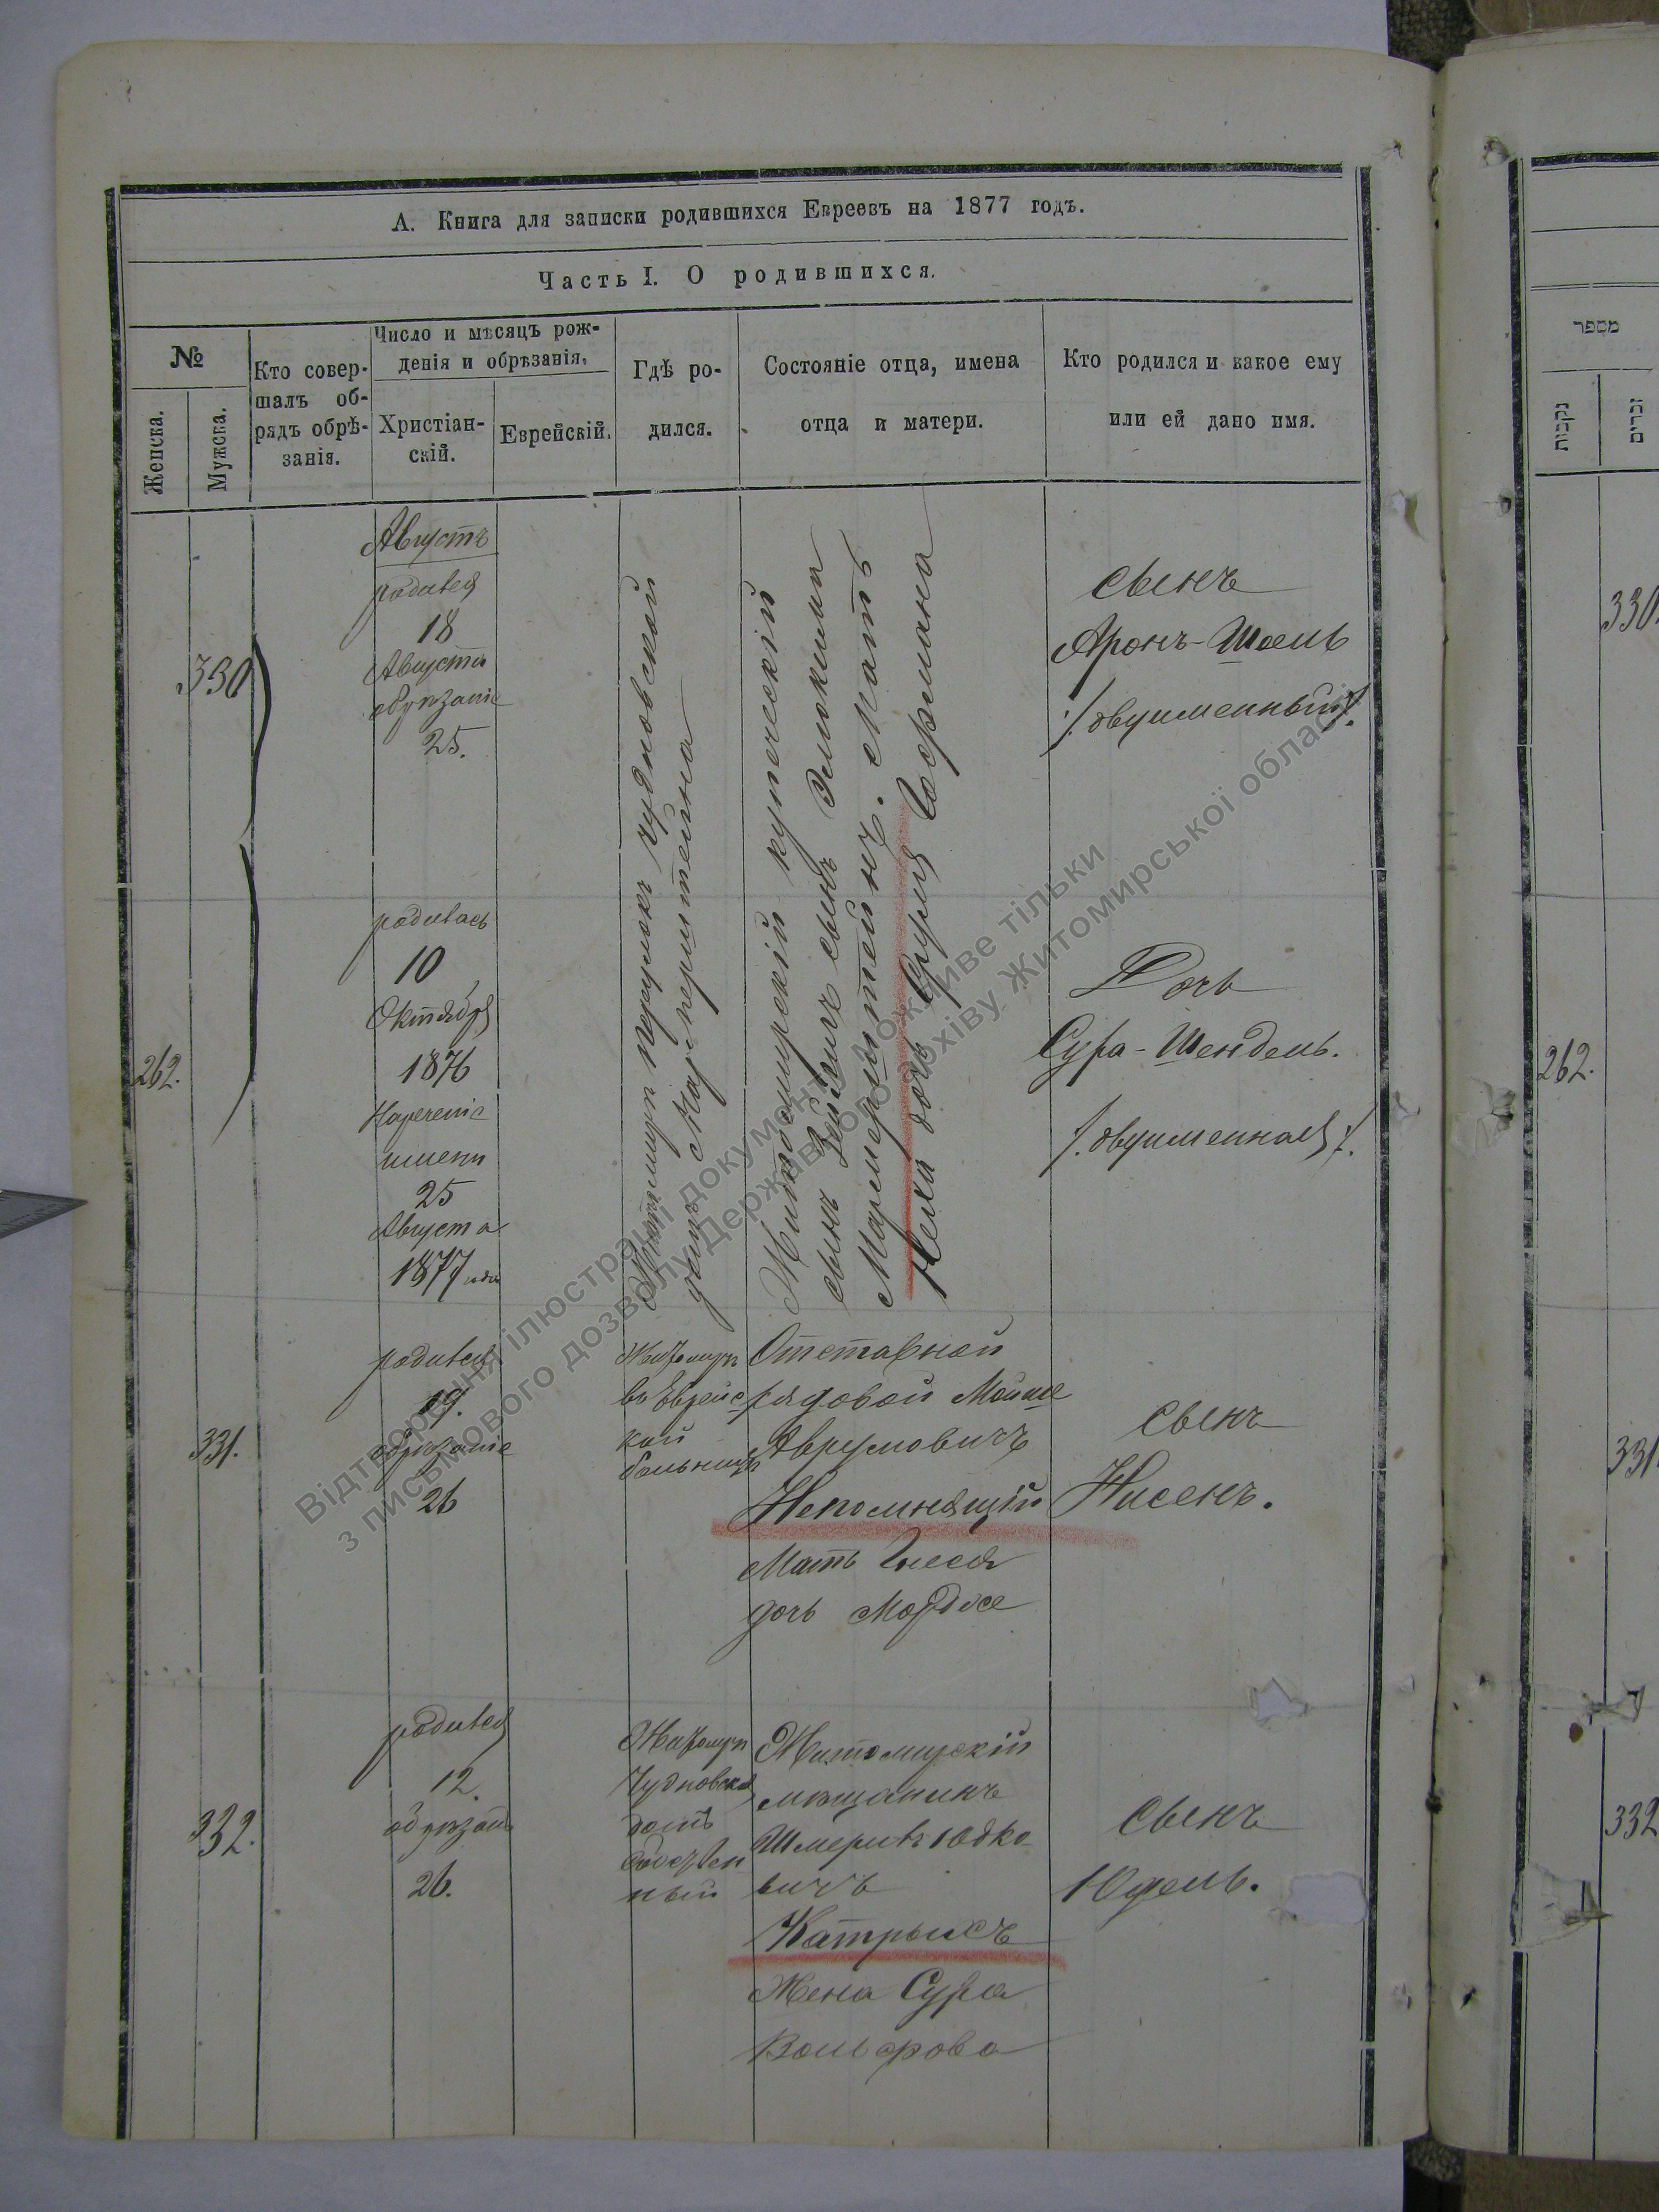 А. Книга для записки родившихся Евреевъ на 1877 годъ.
Часть I. О родившихся.
№
Женска.
Мужска.
Кто совер-
шалъ об-
рядъ обрѣ-
занія.
Число и мѣсяцъ рож-
денія и обрѣзанія.
Христіан-
скій.
Еврейскій.
Гдѣ ро-
дился.
Состояніе отца, имена
отца и матери.
Кто родился и какое ему
или ей дано имя.
330
Августъ
родился
18
Августа
обрѣзаніе
25.
Житомиръ переулокъ Чудновской
Житомирский купеческій
сынъ
сынъ
Мармерштейнъ. Мать
дочь
сынъ
Аронъ-Шаель
/.двуименный/.
262.
родилась
10
Октября
1876
Нареченіе
имени
25
Августа
1877 года
Дочь
Сура-Шендель.
/.двуименная/.
331.
родился
19.
обрѣзаніе
26
Житомиръ
въ Еврейс
кой
больницѣ
Отставной
рядовой Мойше
Аврумовичъ
Непомнящій
Мать
дочь Мордхе
сынъ
Нисенъ.
332.
родился
12.
обрѣзан
26.
Житомиръ
Чудновская
домъ
собствен
ный
Житомирскій
мѣщанинъ
Шмериль Юдко
вичъ
Катрыысъ
Жена Сура
сынъ
Юдель.
מספר
נקבות
זכרים
330
262.
331
332
Відтворення ілюстрації документу можливе тільки
з письмового дозволу Державного архіву Житомирської області